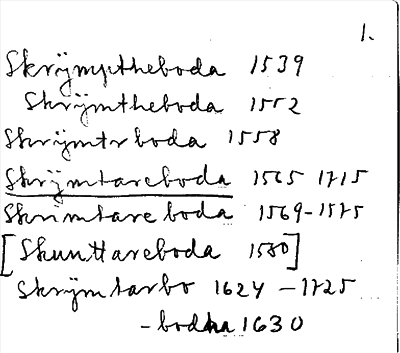 1.
Skrÿmptheboda 1539
Skrÿmtheboda 1552
Skrÿmtrboda 1558
Skrÿmtareboda 1565 1715
Skrimtareboda 1569-1575
[Skunttareboda 1580]
Skrÿmtarbo 1624 - 1725
- bodha 1630